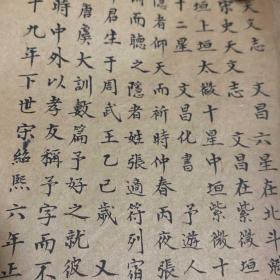 天文志　文昌六星在北斗
宋史天文志　文昌在紫微
上垣太微十星中垣紫微十
十二星　文昌化書　予遊人
隱者仰天而祈時仲春丙夜張
而聽之隱者姓張適符列宿
君生于周武王乙巳歲　又
唐虞大訓數篇予好之就彼
時中外以孝友稱予字而不
十九年下世宋紹熙六年正